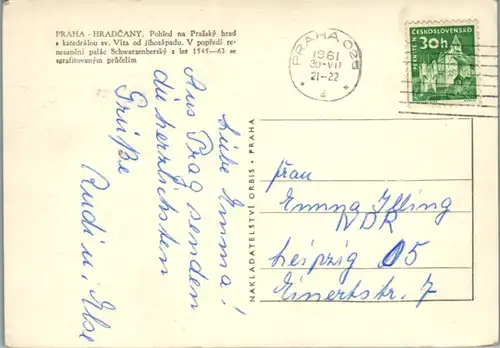 PRAHA - HRADČANY. Pohled na Pražský hrad
s katedrálou sv. Víta od jihozápadu. V popředí re-
nesanční palác Schwarzenberský z let 1545—63 se
sgrafitovaným průčelím
PRAHA 025
1961
30·VII
21-22
ČESKOSLOVENSKO
30h
PERNŠTEJN
Liebe Emma!
Aus Prag senden
die herzlichsten
Grüße
Rudi u. Ilse
NAKLADATELSTVÍ ORBIS · PRAHA
Frau
Emma Ifling
NDR
Leipzig 05
Einertstr. 7